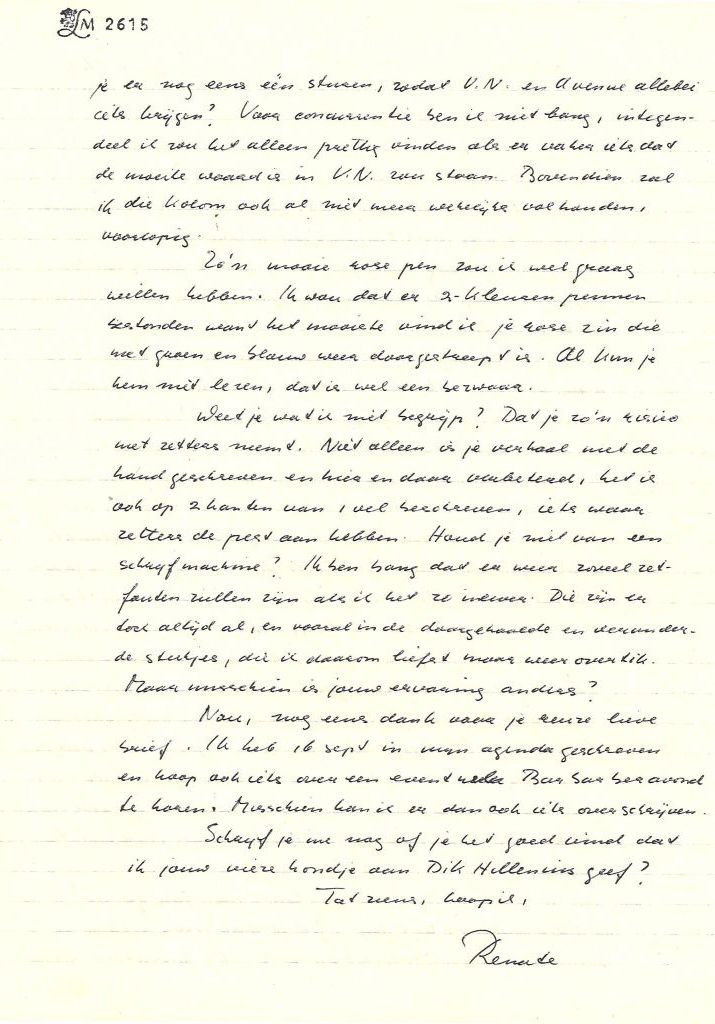 LM 2615
je er nog eens één sturen, zodat V.N. en Avenue allebei
iets krijgen? Voor concurrentie ben ik niet bang, integen-
deel ik zou het alleen prettig vinden als er vaker iets dat
de moeite waard is in V.N. zou staan. Bovendien zal
ik die kolom ook al niet meer wekelijks volhouden,
voorlopig.
Zo'n mooie rose pen zou ik wel graag
willen hebben. Ik wou dat er 2-kleuren pennen
bestonden want het mooiste vind ik je rose zin die
met groen en blauw weer doorgestreept is. Al kun je
hem niet lezen, dat is wel een bezwaar.
Weet je wat ik niet begrijp? Dat je zo'n risico
met zetters neemt. Niet alleen is je verhaal met de
hand geschreven en hier en daar verbeterd, het is
ook op 2 kanten van 1 vel beschreven, iets waar
zetters de pest aan hebben. Houd je niet van een
schrijfmachine? Ik ben bang dat er weer zoveel zet-
fouten zullen zijn als ik het zo inlever. Die zijn er
toch altijd al, en vooral in de doorgehaalde en verander-
de stukjes, die ik daarom liefst maar weer overtik.
Maar misschien is jouw ervaring anders?
Nou, nog eens dank voor je reuze lieve
brief. Ik heb 16 sept in mijn agenda geschreven
en hoop ook iets over een eventuele Barbarberavond
te horen. Misschien kan ik er dan ook iets over schrijven.
Schrijf je me nog of je het goed vind dat
ik jouw vieze hondje aan Dik Hillenius geef?
Tot ziens, hoop ik,
Renate